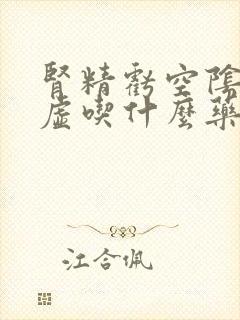 腎精虧空陰
虛喫什麼藥
江合佩